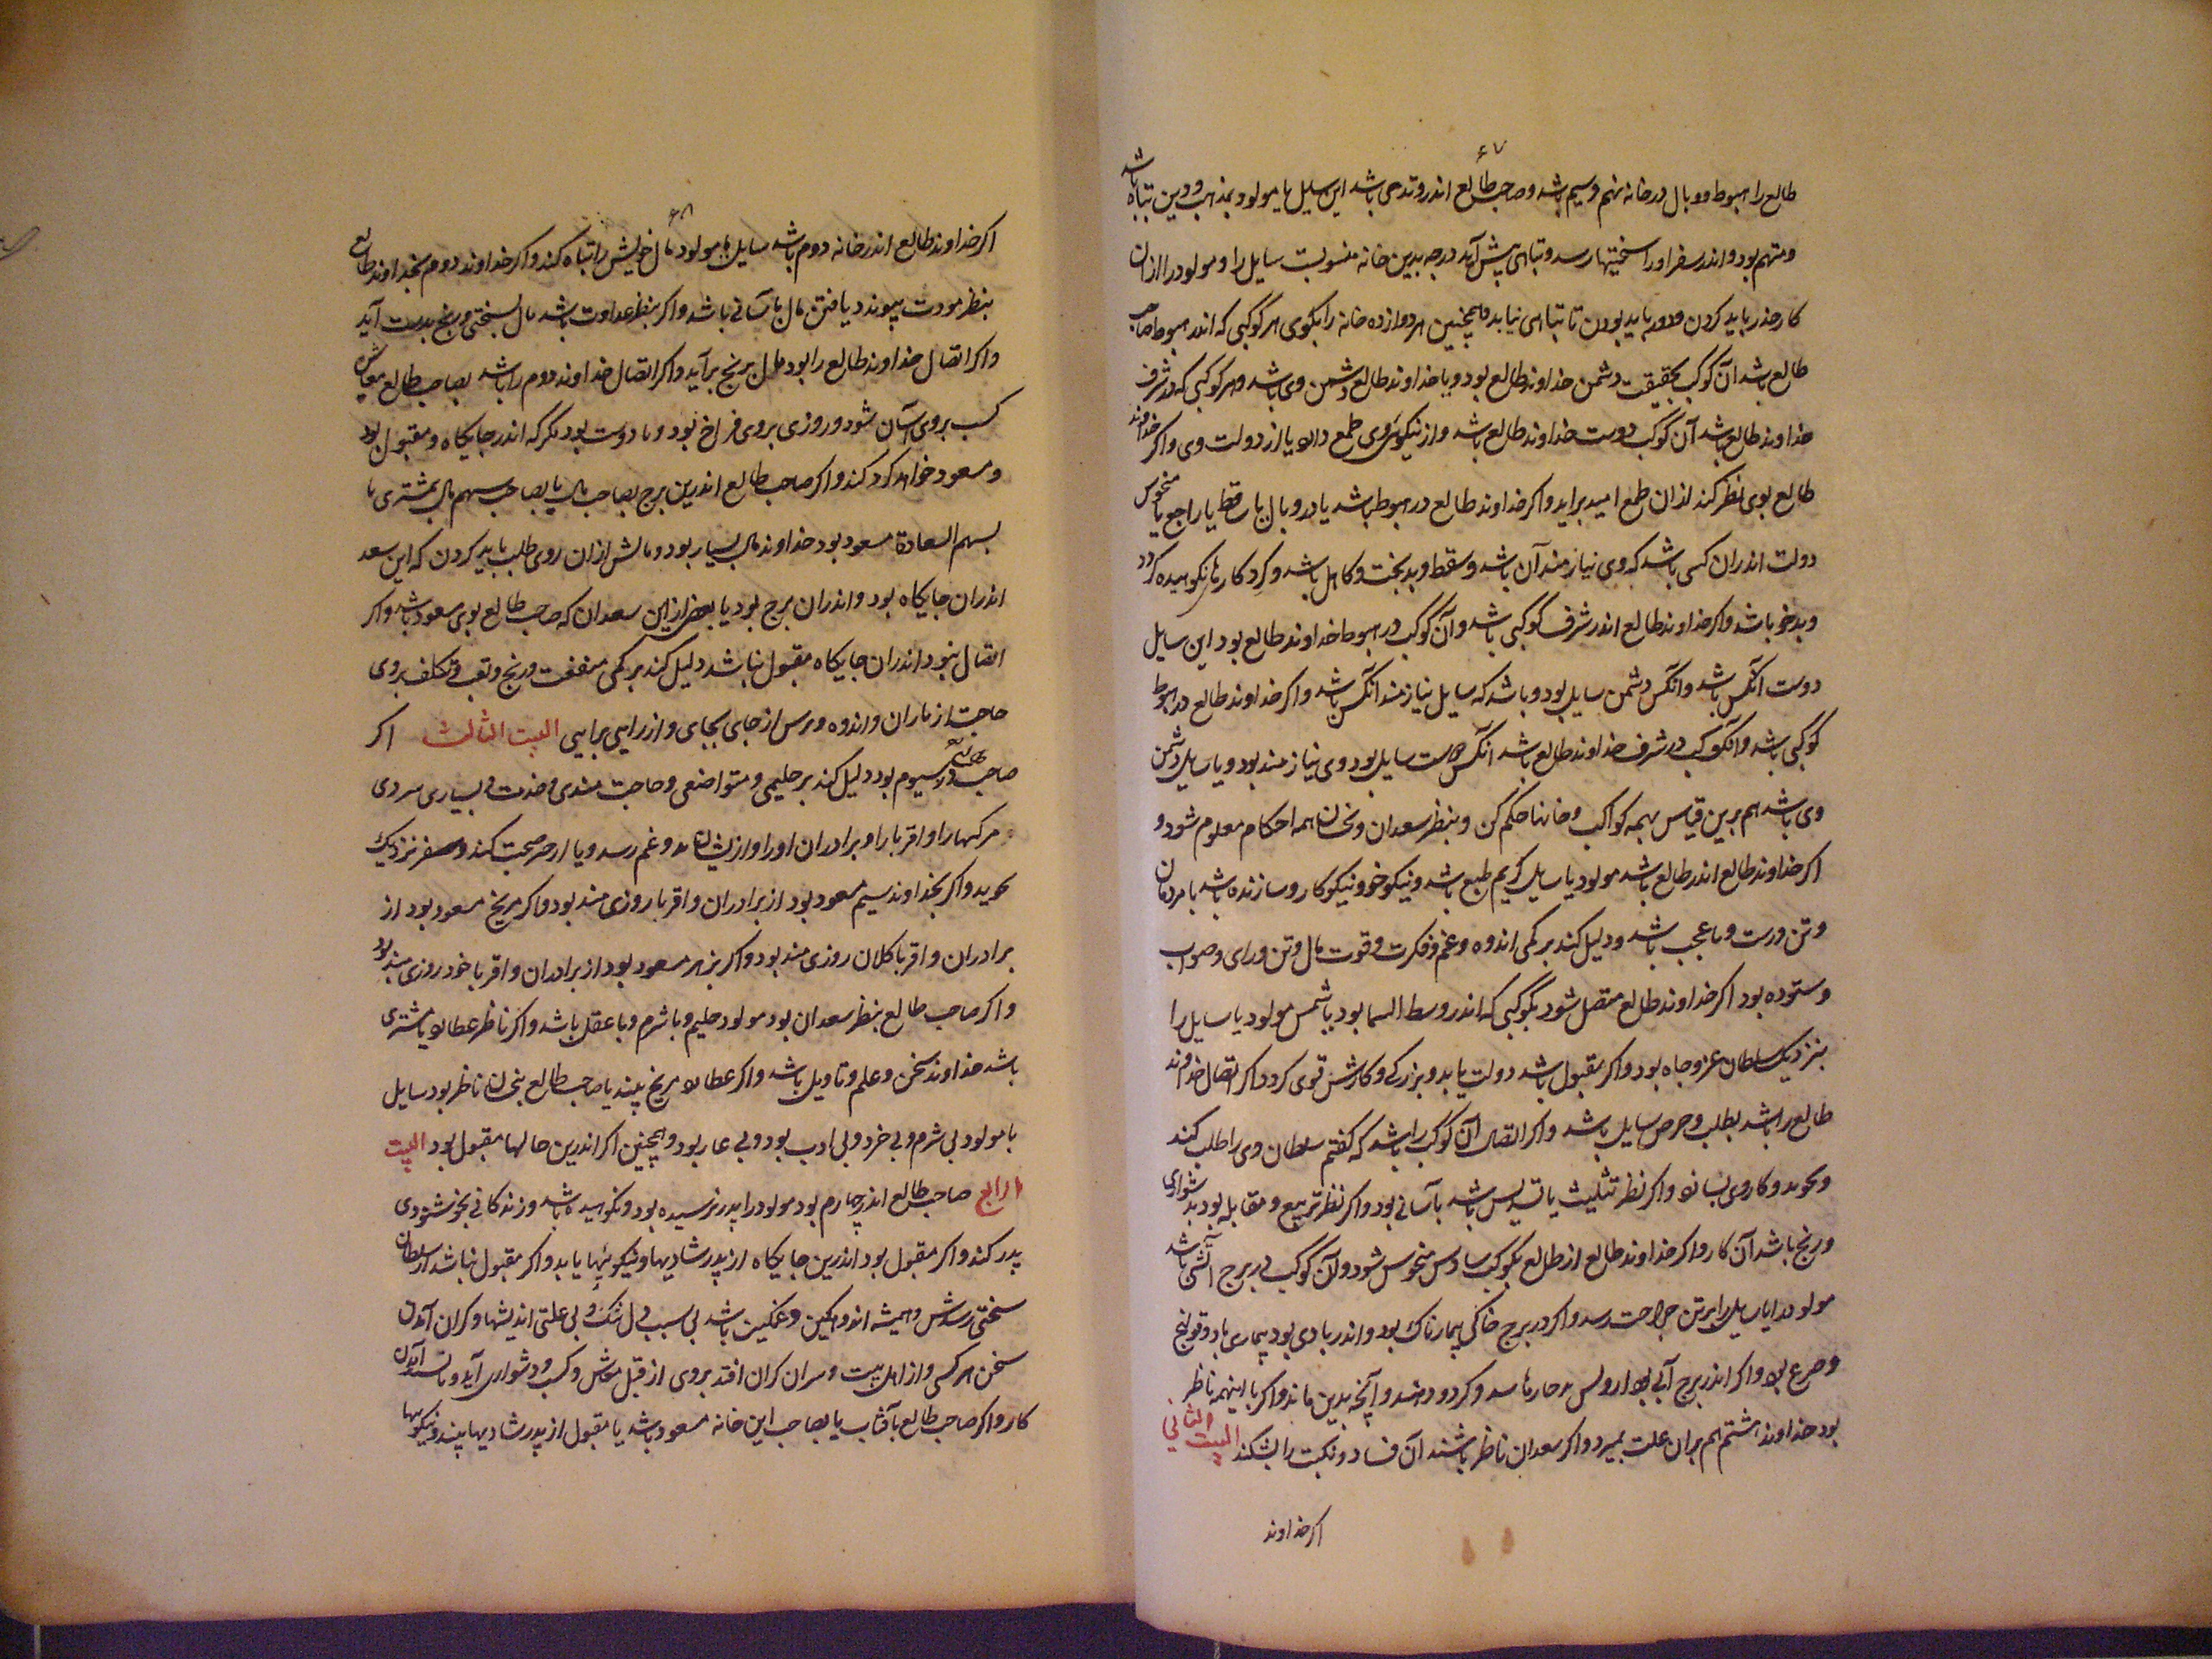 ۶۷
طالع را هبوط و وبال در خانه نهم و سیم باشد و صاحب طالع اندر و تدمی باشد این سایل یا مولود بمذهب و دین تباه باشد
و متهم بود و اندر سفر او را سختیها رسد و تباهی پیش آید درجه بدین خانه منسوبست سایل را و مولود را از آن
کار حذر باید کردن و دور باید بودن تا تباهی نیابد و همچنین هر دوازده خانه را بگوی هر کوکبی که اندر هبوط صاحب
طالع باشد آن کوکب بحقیقت دشمن خداوند طالع بود و یا خداوند طالع دشمن وی باشد و هر کوکبی که در شرف
خداوند طالع باشد آن کوکب دوست خداوند طالع باشد و از نیکوئی وی طمع دارد یا از دولت وی و اکر خداوند
طالع بوی نظر کند از آن طمع امید براید و اکر خداوند طالع در هبوط باشد یا در وبال یا ساقط یا راجع یا منحوس
دولت اندران کسی باشد که وی نیازمند آن باشد و سقط و بدبخت و کاهل باشد و کرد کارهای نکوهیده کردد
و بدخو باشد و اکر خداوند طالع اندر شرف کوکبی باشد و آن کوکب در هبوط خداوند طالع بود این سایل
دوست آنکس باشد و آنکس دشمن سایل بود و باشد که سایل نیازمند آنکس باشد و اکر خداوند طالع در هبوط
کوکبی باشد و آن کوکب در شرف خداوند طالع باشد آنکس دوست سایل بود وی نیازمند بود و یا سایل دشمن
وی باشد هم برین قیاس بهمه کواکب و خانها حکم کن و بنظر سعدان و نحسان همه احکام معلوم شود و
اکر خداوند طالع اندر طالع باشد مولود یا سایل کریم طبع باشد و نیکوخو و نیکوکار و سازنده باشد با مردمان
و تن درست و با عجب باشد و دلیل کند بر کمی اندوه و غم و فکرت و قوت مال و تن و رای و صواب
و ستوده بود اکر خداوند طالع متصل شود بکوکبی که اندر وسط السما بود یا شمس مولود یا سایل را
بنزدیک سلطان عز و جاه بود و اکر مقبول باشد دولت یابد و بزرکی و کارش قوی کردد اکر اتصال خداوند
طالع را باشد بطلب و حرص سایل باشد و اکر اتصال آن کوکب را باشد که کفتم سلطان وی را طلب کند
و کار وی بسازد و اکر نظر تثلیث یا تسدیس باشد بآسانی بود و اکر نظر تربیع و مقابله بود بدشواری
و رنج باشد آن کار و اکر خداوند طالع از طالع بکوکب سادس منحوس شود و آن کوکب در برج آتشی باشد
مولود را یا سایل را بر تن جراحت رسد و اکر در برج خاکی بیمارناک بود و اندر بادی بود بیماری باد و قولنج
و صرع بود و اکر اندر برج آبی بود و آنچه بدین ماند و اکر با اینهمه ناظر
بود خداوند هشتم هم بران علت بمیرد و اکر سعدان ناظر باشند آن فساد و نکبت را بشکند البیت الثانی
اکر خداوند
۶۸
اکر خداوند طالع اندر خانه دوم باشد سایل یا مولود مال خویش را تباه کند و اکر خداوند دوم بخداوند طالع
بنظر مودت پیوندد یافتن مال بآسانی باشد و اکر بنظر عداوت باشد مال بسختی و رنج بدست آید
و اکر اتصال خداوند طالع را بود مال برنج برآید و اکر اتصال خداوند دوم را باشد بصاحب طالع معاش
کسب بروی آسان شود و روزی بروی فراخ بود و با دوست بود مکر که اندر جایکاه و مقبول بود
و مسعود خواهد کرد کند و اکر صاحب طالع اندرین برج بصاحب مال یا بصاحب سهم مال بمشتری یا
بسهم السعادة مسعود بود خداوند مال بسیار بود و مالش ازان روی طلب باید کردن که این سعد
اندران جایکاه بود و اندران برج بود یا بعضی از این سعدان که صاحب طالع بوی مسعود باشد و اکر
اتصال نبود اندران جایکاه مقبول نباشد دلیل کند بر کمی منفعت و رنج و تعب و تکلف بروی
حاجت از یاران و اندوه و ترس از جای بجای و از راهی براهی البیت الثالث اکر
صاحب طالع در سیوم بود دلیل کند بر حلیمی و متواضعی و حاجت مندی و خدمت و بسیاری سردی
مرکها را و اقربا را و برادران او را و از ایشان غم رسد و با صحبت کند و سفر نزدیک
جوید و اکر بخداوند سیم مسعود بود از برادران و اقربا روزی مند بود و اکر مریخ مسعود بود از
برادران و اقربا کلان روزی مند بود و اکر بزهره مسعود بود از برادران و اقربا خورد روزی مند بود
و اکر صاحب طالع بنظر سعدان بود مولود حلیم و با شرم و با عقل باشد و اکر ناظر عطارد یا مشتری
باشد خداوند سخن و علم و تاویل باشد و اکر عطارد مریخ بیند یا صاحب طالع بنحسان ناظر بود سایل
یا مولود بی شرم و بی خرد و بی ادب بود و بی عار بود و همچنین اکر اندرین حالها مقبول بود البیت
الرابع صاحب طالع اندر چهارم بود مولود را پدر نرسیده بود و نکوهیده باشد و زندکانی بخوشنودی
پدر کند و اکر مقبول بود اندرین جایکاه از پدر شادیها و نیکوئیها یابد و اکر مقبول نباشد از سلطان
سختی رسدش و همیشه اندوهکین و غمکین باشد بی سبب و دل تنک و بی علتی اندیشها و کران آمدن
سخن هر کسی و از اهل بیت و سران کران افتد بروی از قبل معاش و کسب و دشواری آید
کار و اکر صاحب طالع بآفتاب یا بصاحب این خانه مسعود باشد یا مقبول از پدر شادیها بیند و نیکوییها